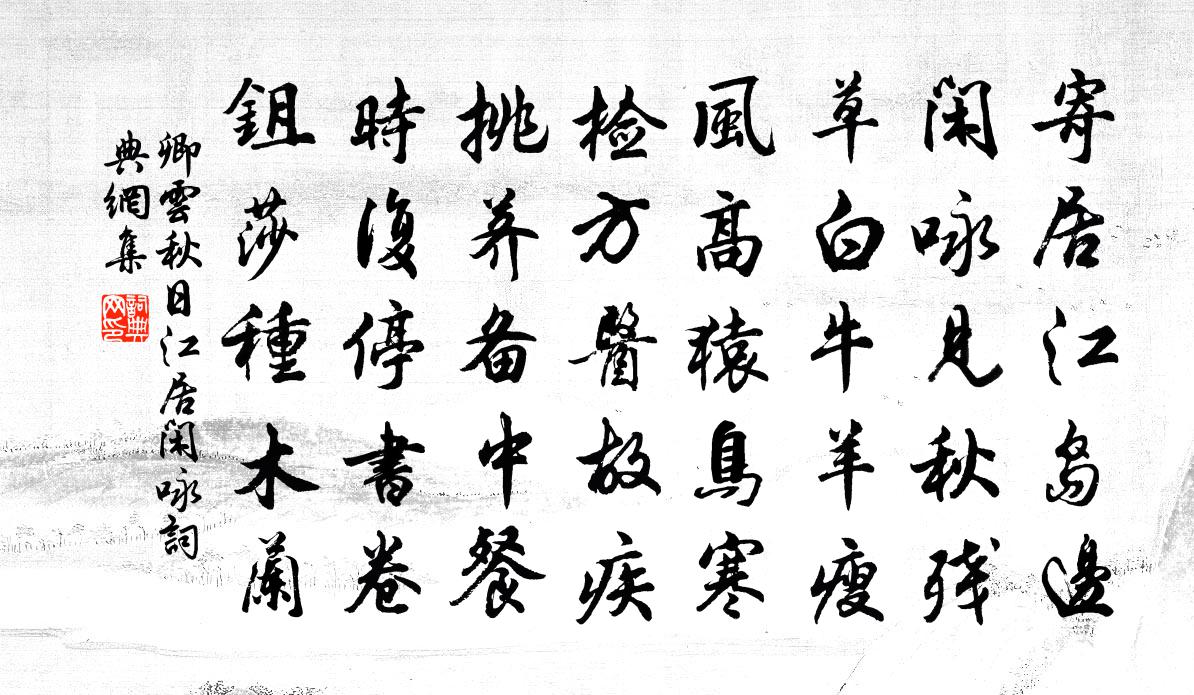 寄居江島邊
閑咏見秋残
草白牛羊瘦
風高猿鳥寒
检方醫故疾
挑荠备中餐
時復停書卷
鉏莎種木蘭
卿雲秋日江居閑咏詞
典網集
詞典
网印